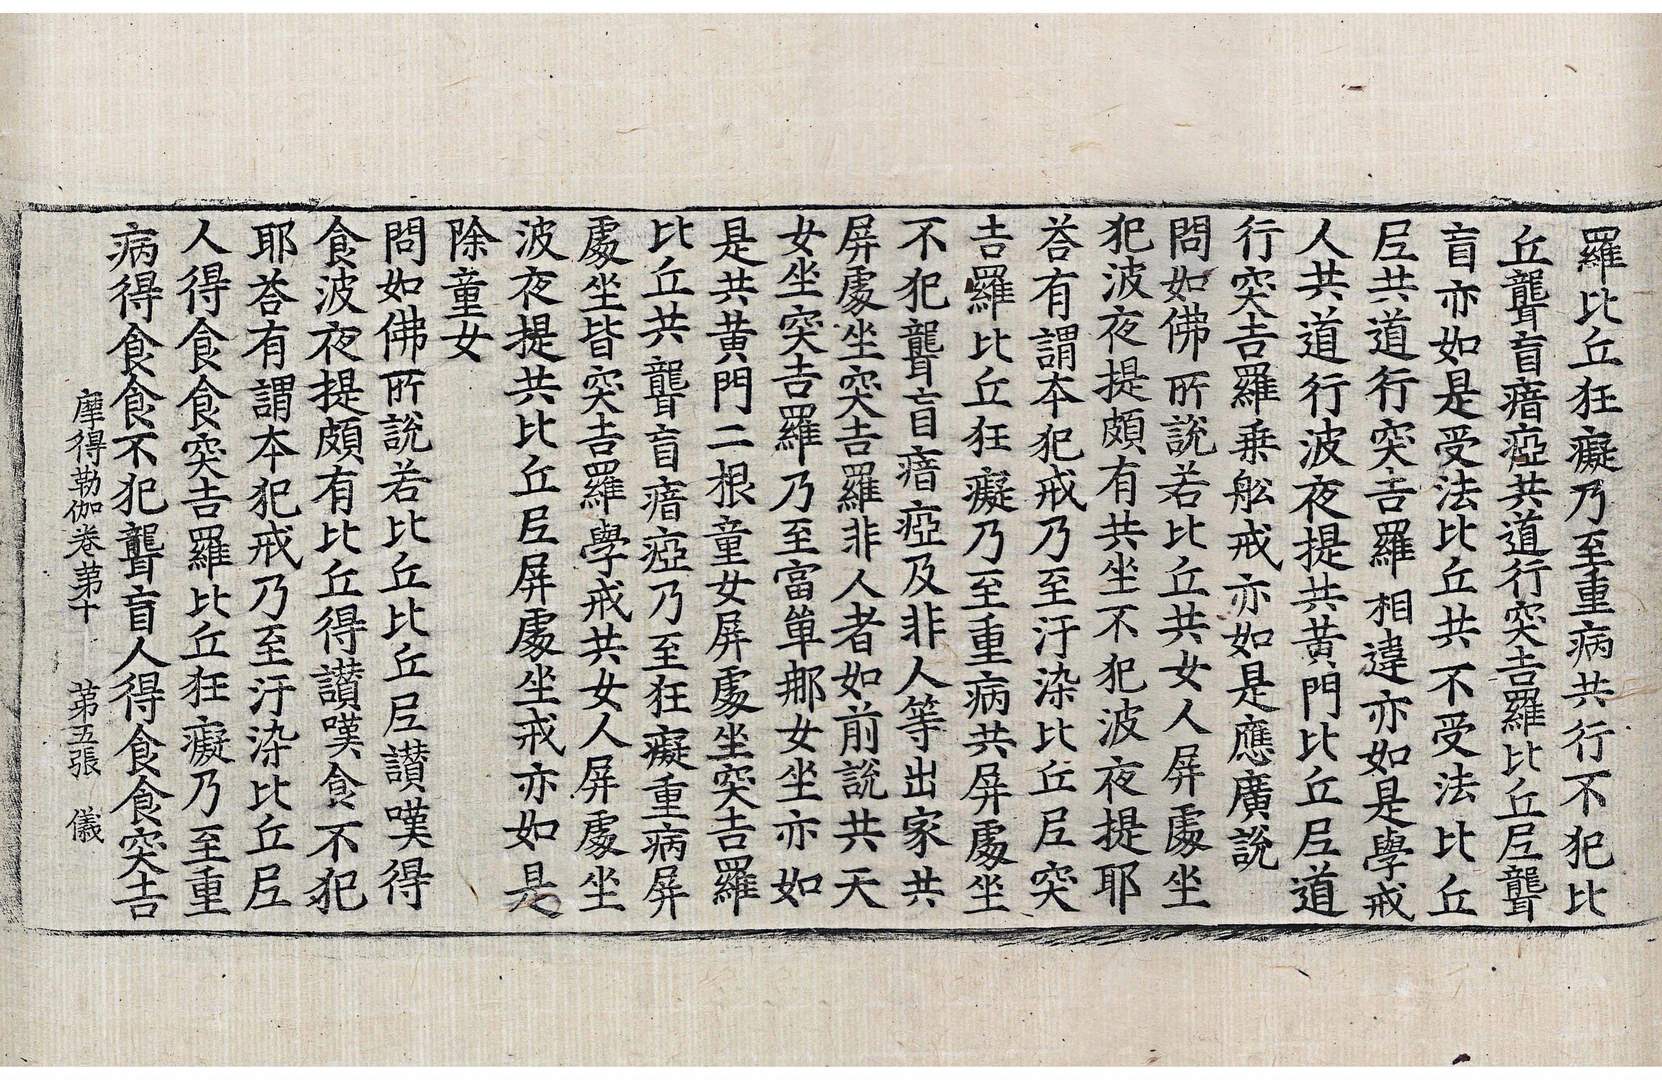 羅比丘狂癡乃至重病共行不犯比
丘聾盲瘖瘂共道行突吉羅比丘尼聾
盲亦如是受法比丘共不受法比丘
尼共道行突吉羅相違亦如是學戒
人共道行波夜提共黃門比丘尼道
行突吉羅乗舩戒亦如是應廣說
問如佛所說若比丘共女人屏處坐
犯波夜提頗有共坐不犯波夜提耶
荅有謂本犯戒乃至汙染比丘尼突
吉羅比丘狂癡乃至重病共屏處坐
不犯聾盲瘖瘂及非人等出家共
屏處坐突吉羅非人者如前說共天
女坐突吉羅乃至富單那女坐亦如
是共黃門二根童女屏處坐突吉羅
比丘共聾盲瘖瘂乃至狂癡重病屏
處坐皆突吉羅學戒共女人屏處坐
波夜提共比丘尼屏處坐戒亦如是
除童女
問如佛所說若比丘比丘尼讃嘆得
食波夜提頗有比丘得讃嘆食不犯
耶荅有謂本犯戒乃至汙染比丘尼
人得食食突吉羅比丘狂癡乃至重
病得食食不犯聾盲人得食食突吉
摩得勒伽卷苐十 苐五張 儀